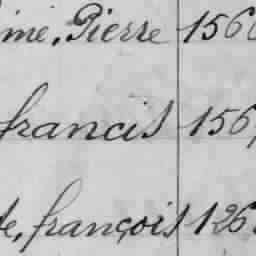 ime, Pierre 156
francis 156
de, françois 126